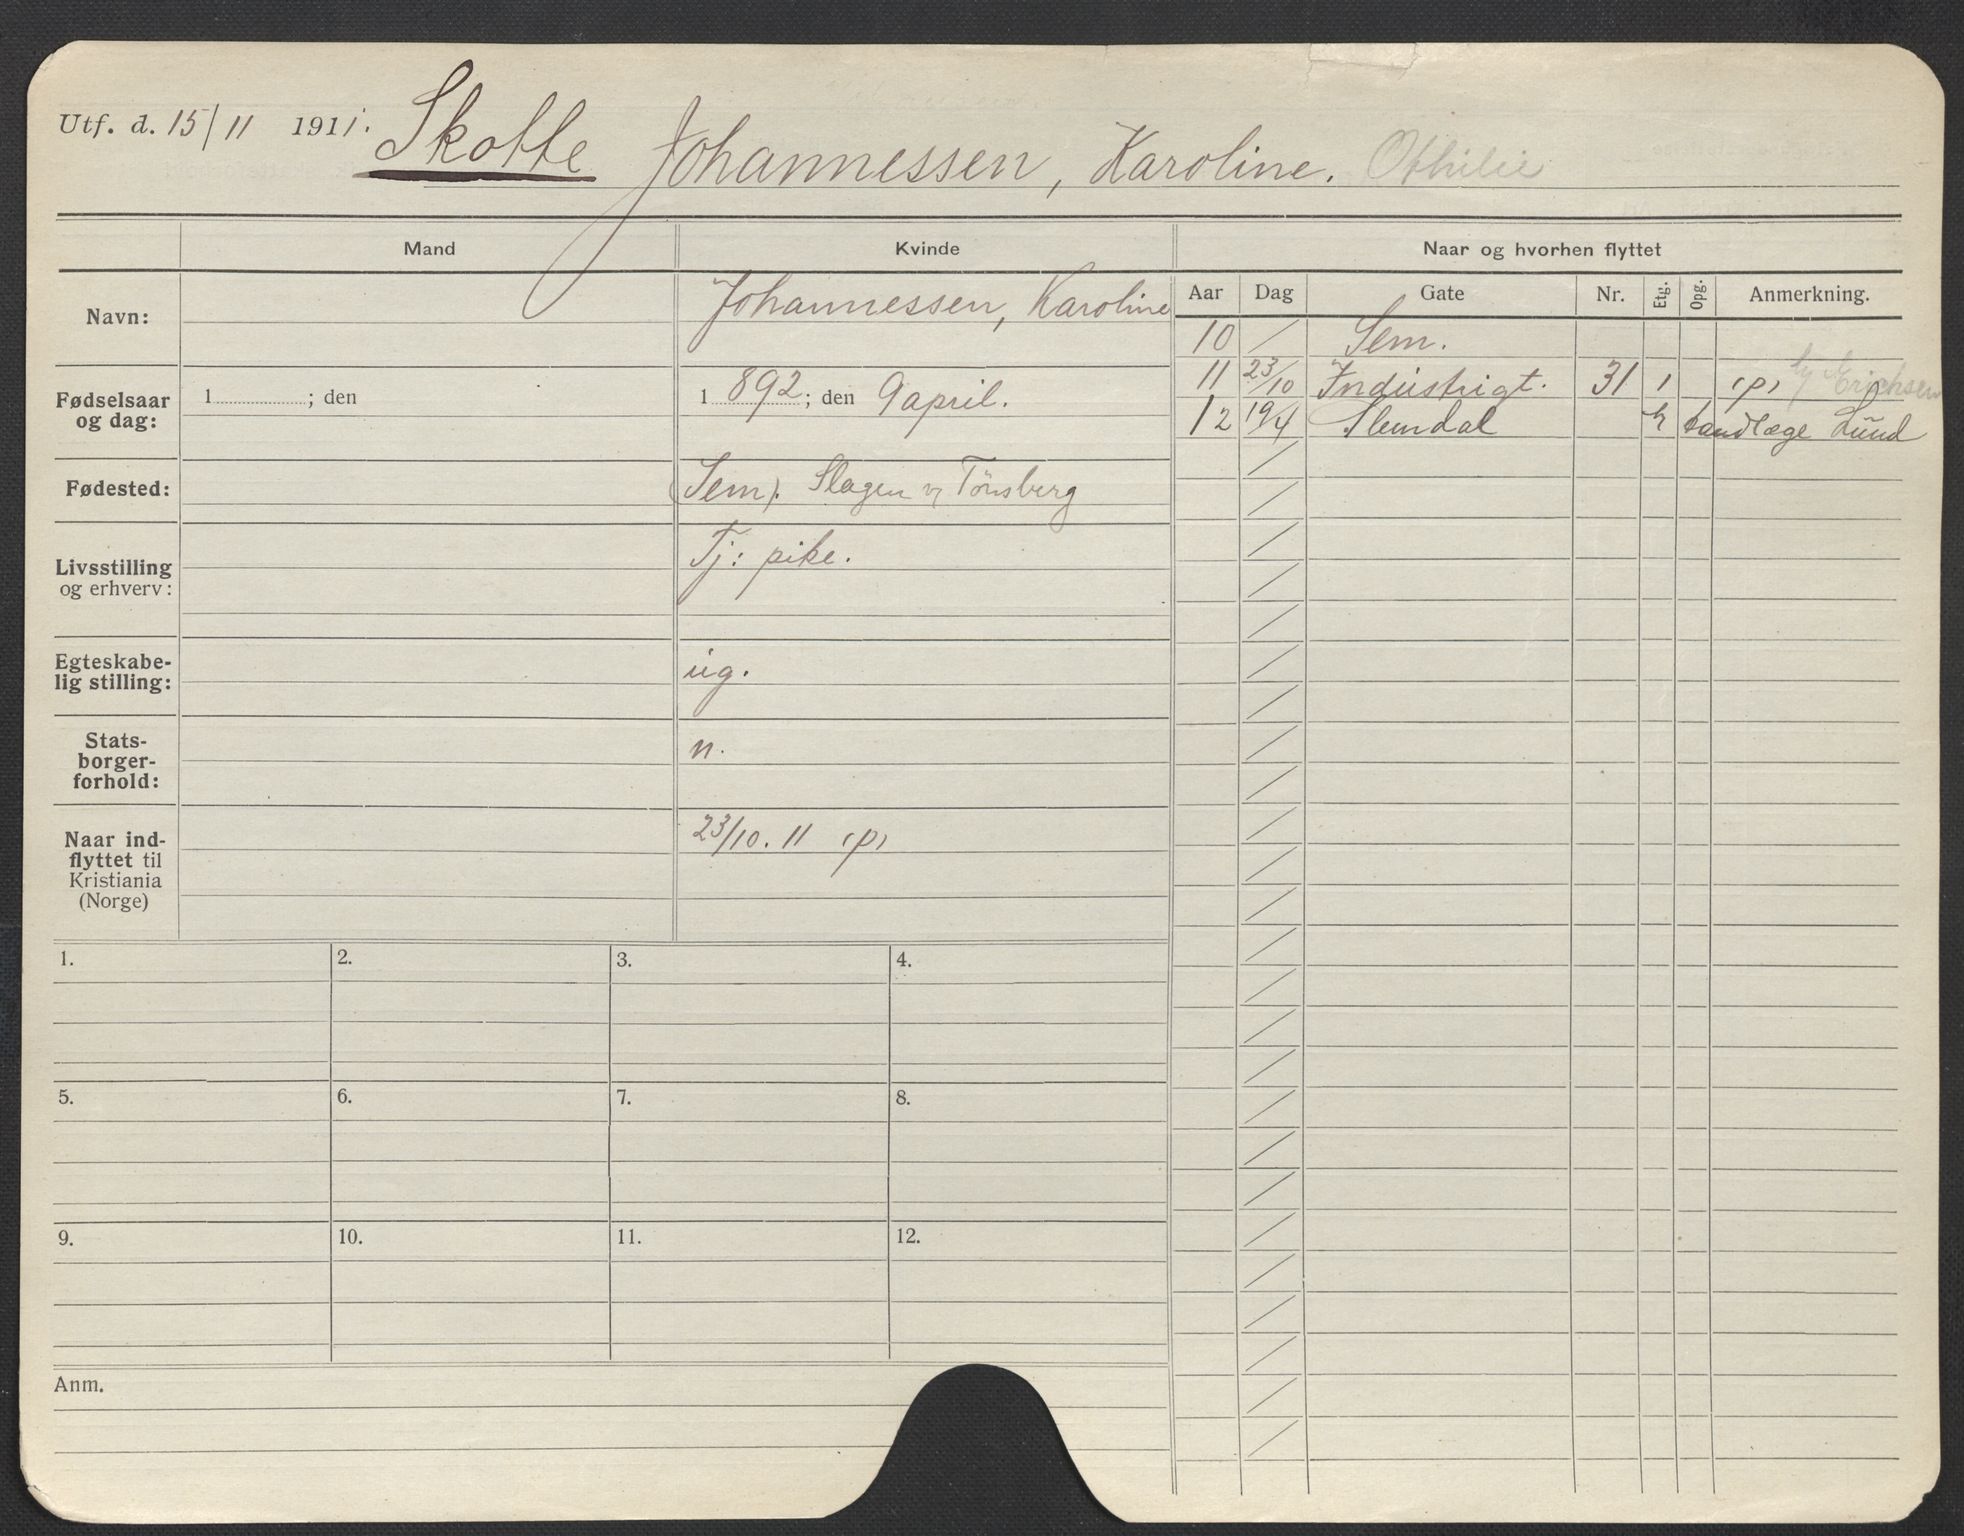 Utf. d. 15/11 1911. Skotte Johannessen, Karoline. Othilie
Mand
Kvinde
Naar og hvorhen flyttet
Navn:
Johannessen, Karoline
Aar Dag Gate Nr. Etg. Opg. Anmerkning.
10 Sem.
11 23/10 Industrigt. 31 1 (p) Erichsen
12 19/4 Slemdal tandlæge Lund
Fødselsaar og dag:
1 ; den
1 892 ; den 9 april.
Fødested:
(Sem). Slagen v/ Tönsberg
Livsstilling
og erhverv:
Tj: pike.
Egteskabe-
lig stilling:
ug.
Stats-
borger-
forhold:
n.
Naar ind-
flyttet til
Kristiania
(Norge)
23/10. 11 (p)
1. 2. 3. 4.
5. 6. 7. 8.
9. 10. 11. 12.
Anm.